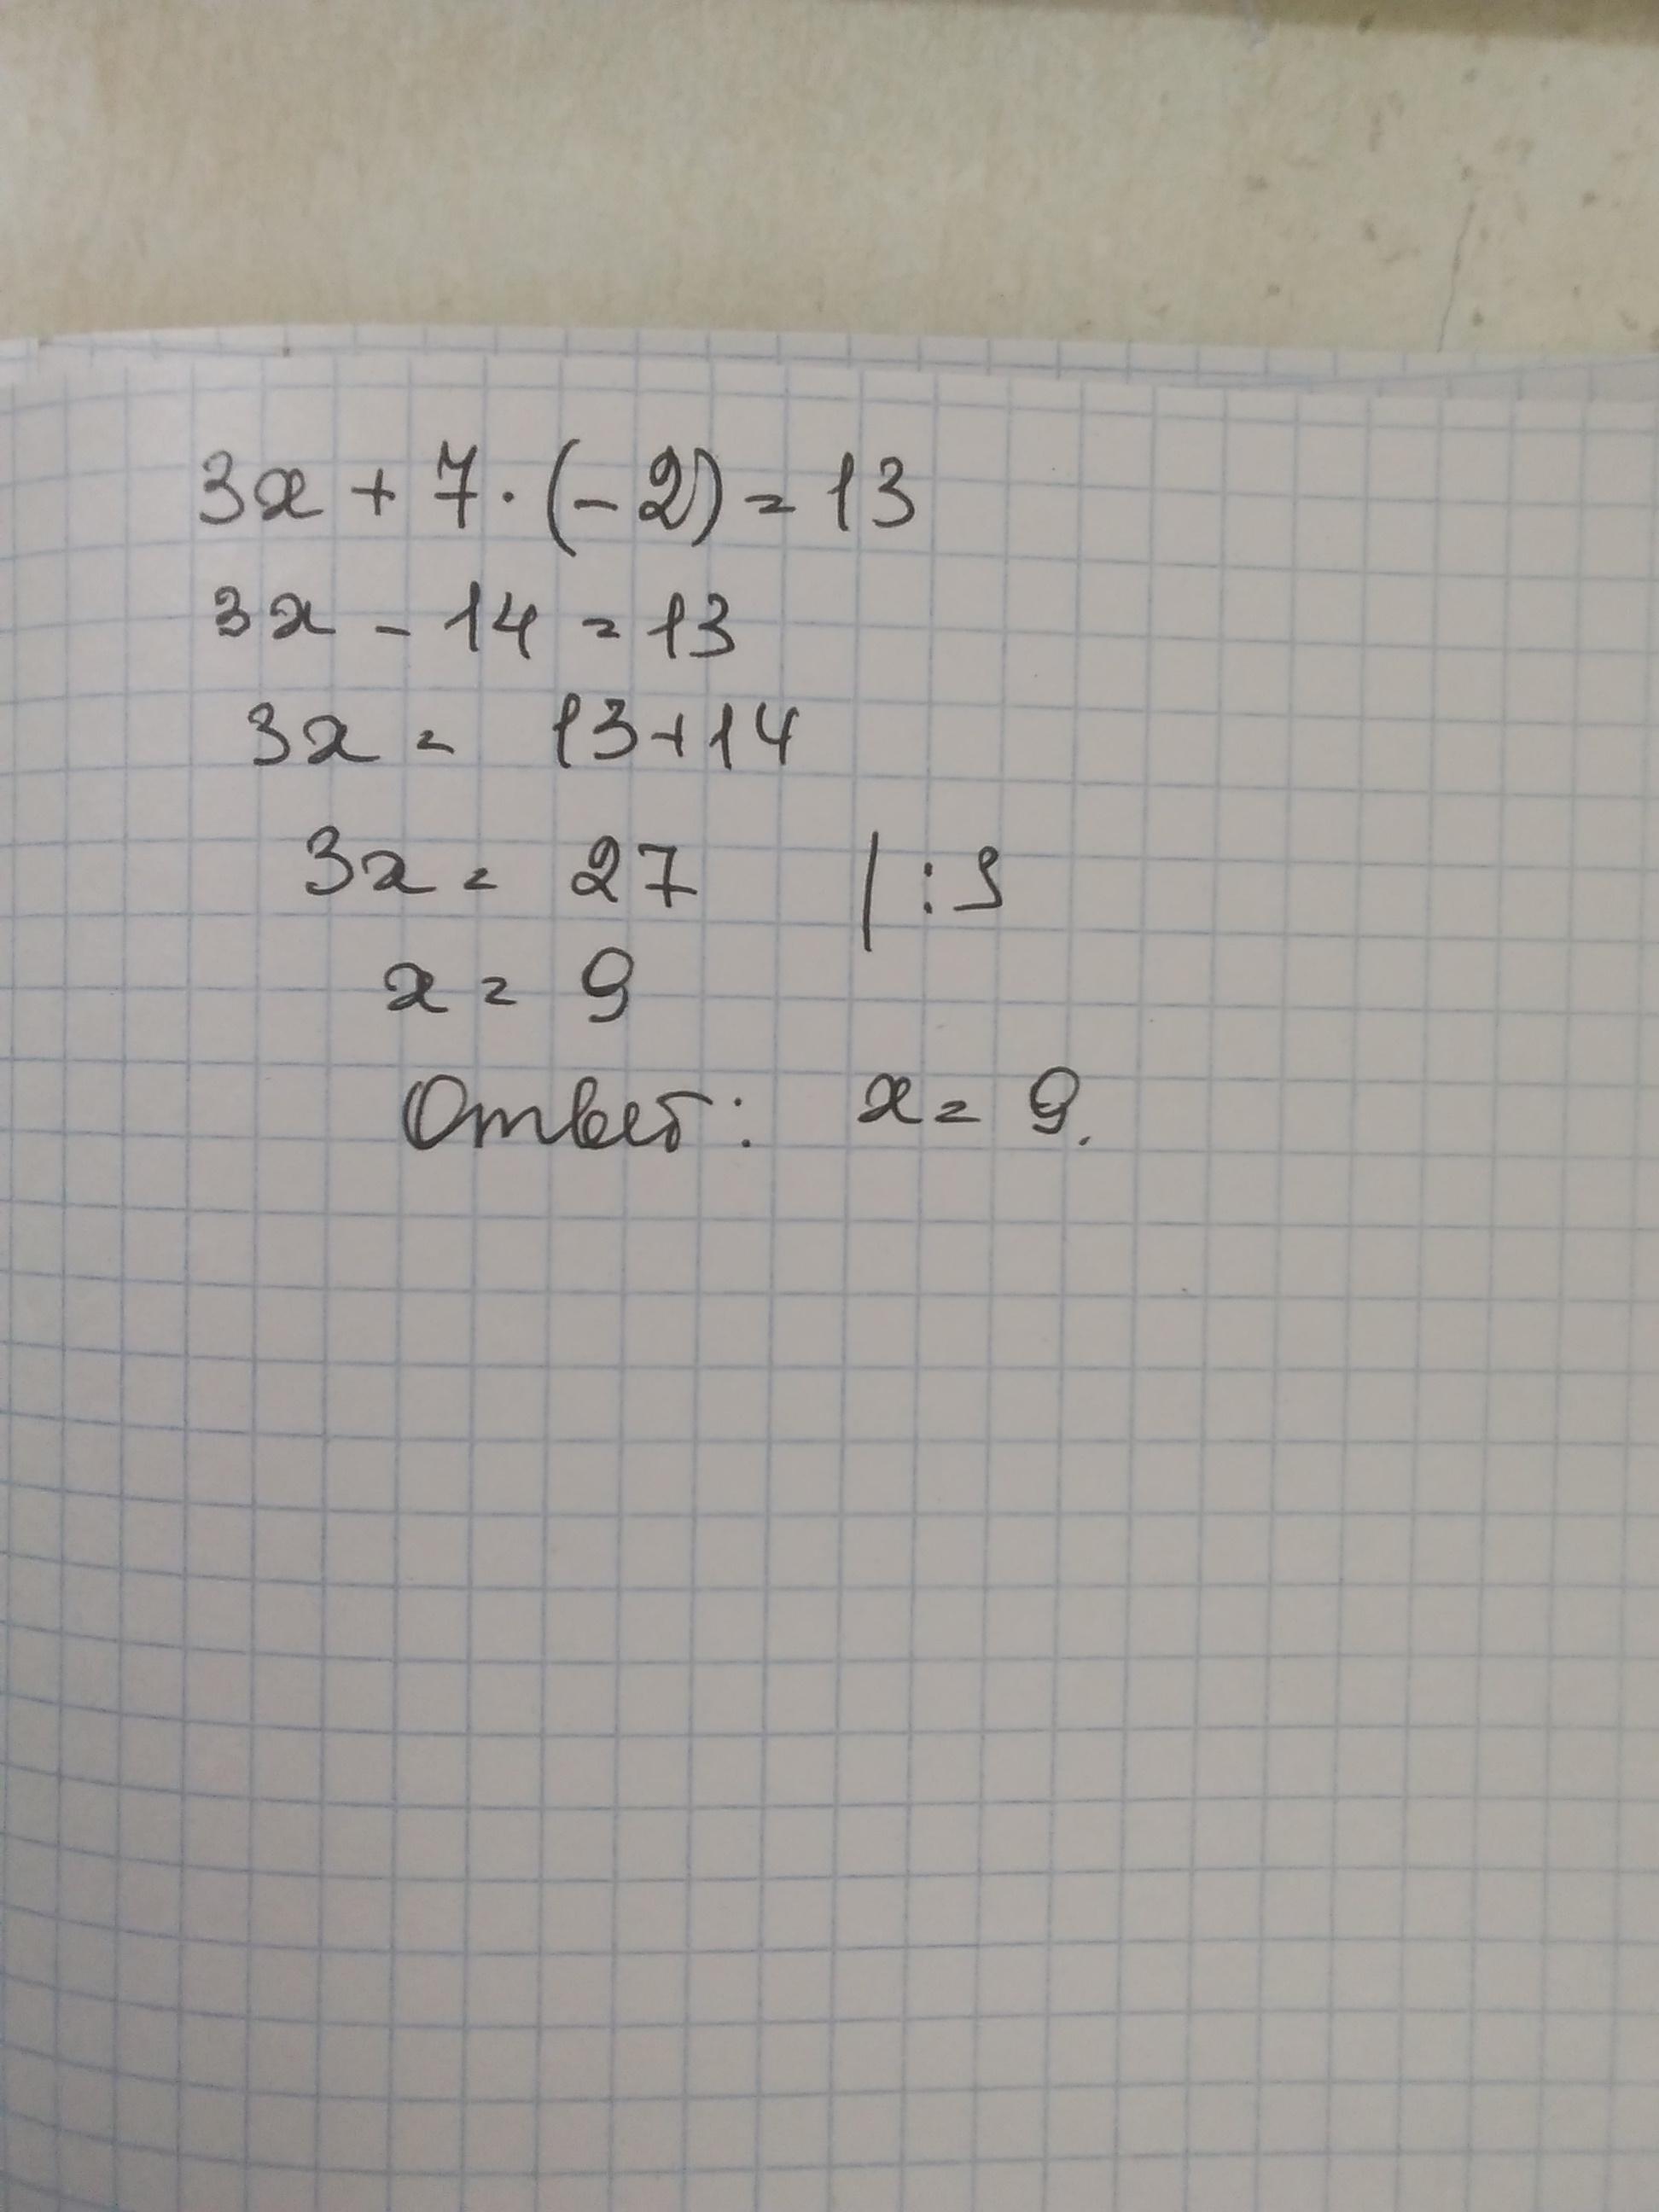 3x + 7 · (-2) = 13
3x - 14 = 13
3x = 13+14
3x = 27 | : 3
x = 9
Ответ: x = 9.